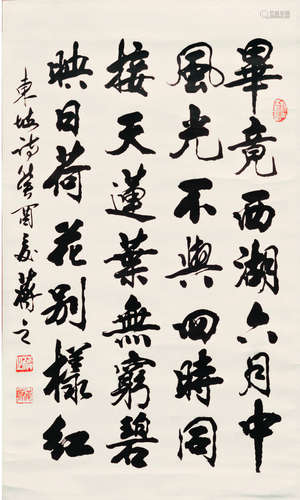 畢竟西湖六月中
風光不與四時同
接天蓮葉無窮碧
映日荷花别樣紅
東坡詩癸酉夏蔣之